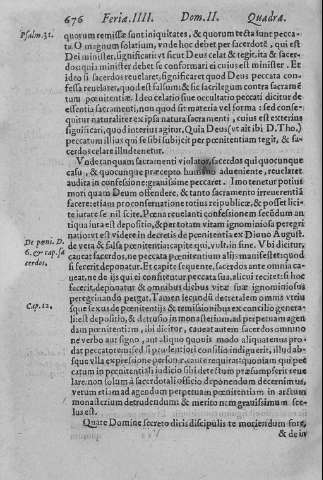 676 Feria. IIII. Dom. II. Quadra.
Psalm. 31. quorum remissæ sunt iniquitates, & quorum tecta sunt pecca-
ta. O magnum solatium, unde hoc debet per sacerdotē, qui est
Dei minister, significari: vt sicut Deus celat & tegit, ita & sacer-
dos quia minister debet se conformari ei cuius est minister. Et
ideo si sacerdos reuelaret, significaret quod Deus peccata con-
fessa reuelaret, quod est falsum: & sic sacrilegum contra sacramē
tum pœnitentiæ. Ideo celatio siue occultatio peccati dicitur de
essentia sacramenti, non quod sit materia vel forma: sed conse-
quitur naturaliter ex ipsa natura sacramenti, cuius est exterius
significari, quod interius agitur. Quia Deus (vt ait ibi D. Tho.)
peccatum illius qui se sibi subijcit per pœnitentiam tegit, & sa-
cerdos celare illud tenetur.
Vnde tanquam sacramenti violator, sacerdos qui quocunque
casu, & quocunque præcepto humano adueniente, reuelaret
audita in confessione: grauissime peccaret. Imo tenetur potius
mori quam Deum offendere, & tanto sacramento irreuerentiā
facere: etiam pro conseruatione totius reipublicæ, & posset lici-
te iurare se nil scite. Pœna reuelanti confessionem secūdum an
tiqua iura est depositio, & per totam vitam ignominiosa peregri
De peni. D. natio: vt est videre in decretis de pœnitentia ex Diuo August.
6. & cap. sa de vera & falsa pœnitentia: capite qui, vult. in fine. Vbi dicitur,
cerdos. caueat sacerdos, ne peccata pœnitentium alijs manifestet: quod
si fecerit, deponatur. Et capite sequente, sacerdos ante omnia ca
ueat, ne de ijs qui ei confitentur peccata sua, alicui recitet: si hoc
fecerit, deponatur & omnibus diebus vitæ suæ ignominiosus
Cap. 12. peregrinando pergat. Tamen secundū decretalem omnis vtriu
sque sexus de pœnitentijs & remissionibus ex concilio genera-
li est depositio, & detrusio in monasterium, ad perpetuam agen
dam pœnitentiam, ibi dicitur, caueat autem sacerdos omnino
ne verbo aut signo, aut aliquo quouis modo aliquatenus pro-
dat peccatorem: sed si prudentiori consilio indiguerit, illud abs-
que vlla expressione personæ caute requirat: quoniam qui pec
catum in pœnitentiali iudicio sibi detectum præsumpserit reue
lare, non solum à sacerdotali officio deponendum decernimus,
verum etiam ad agendum perpetuam pœnitentiam in arctum
monasterium detrudendum: & merito nam grauissimum sce-
lus est.
Quare Domine secreto dicis discipulis te moriendum fore,
& de in